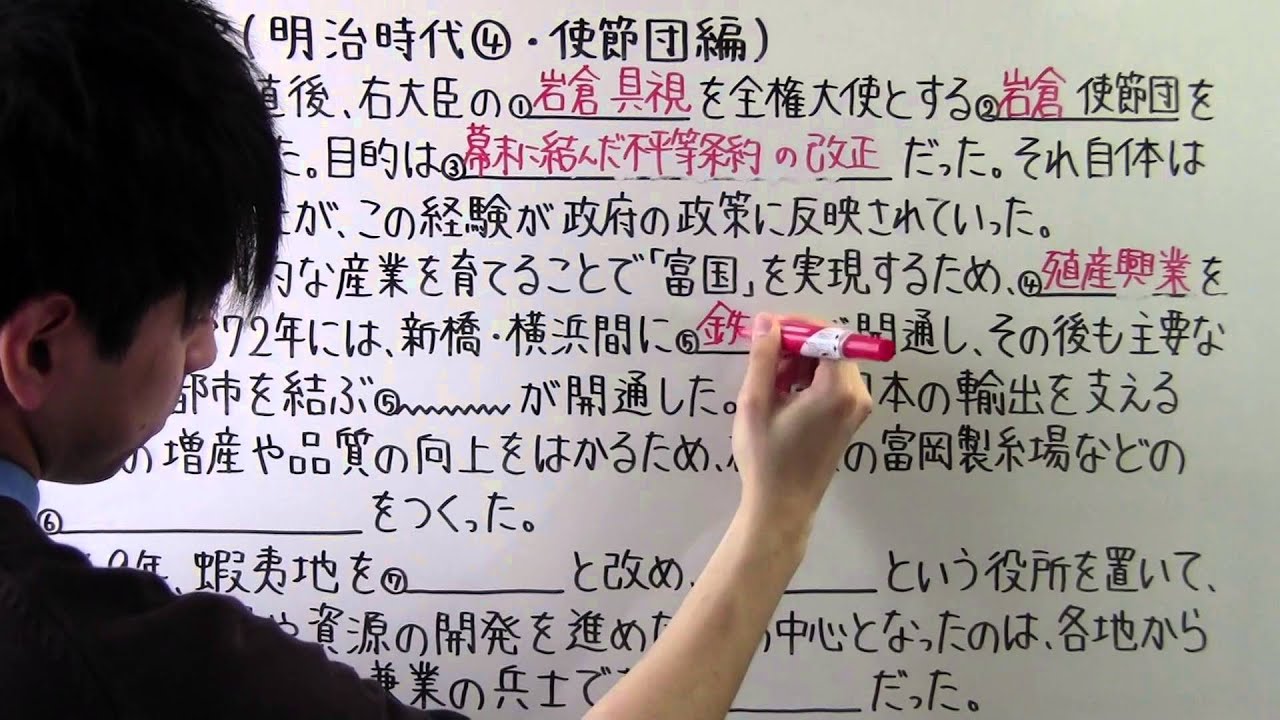 (明治時代④・使節団編)
直後、右大臣の①岩倉具視を全権大使とする②岩倉使節団を
た。目的は③幕末に結んだ不平等条約の改正だった。それ自体は
が、この経験が政府の政策に反映されていった。
的な産業を育てることで「富国」を実現するため、④殖産興業を
72年には、新橋・横浜間に⑤鉄 開通し、その後も主要な
都市を結ぶ⑤ が開通した。 日本の輸出を支える
の増産や品質の向上をはかるため、 の富岡製糸場などの
⑥ をつくった。
9年、蝦夷地を⑦ と改め、 という役所を置いて、
や資源の開発を進めた 中心となったのは、各地から
兼業の兵士で だった。